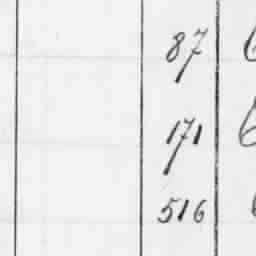 87
171
516